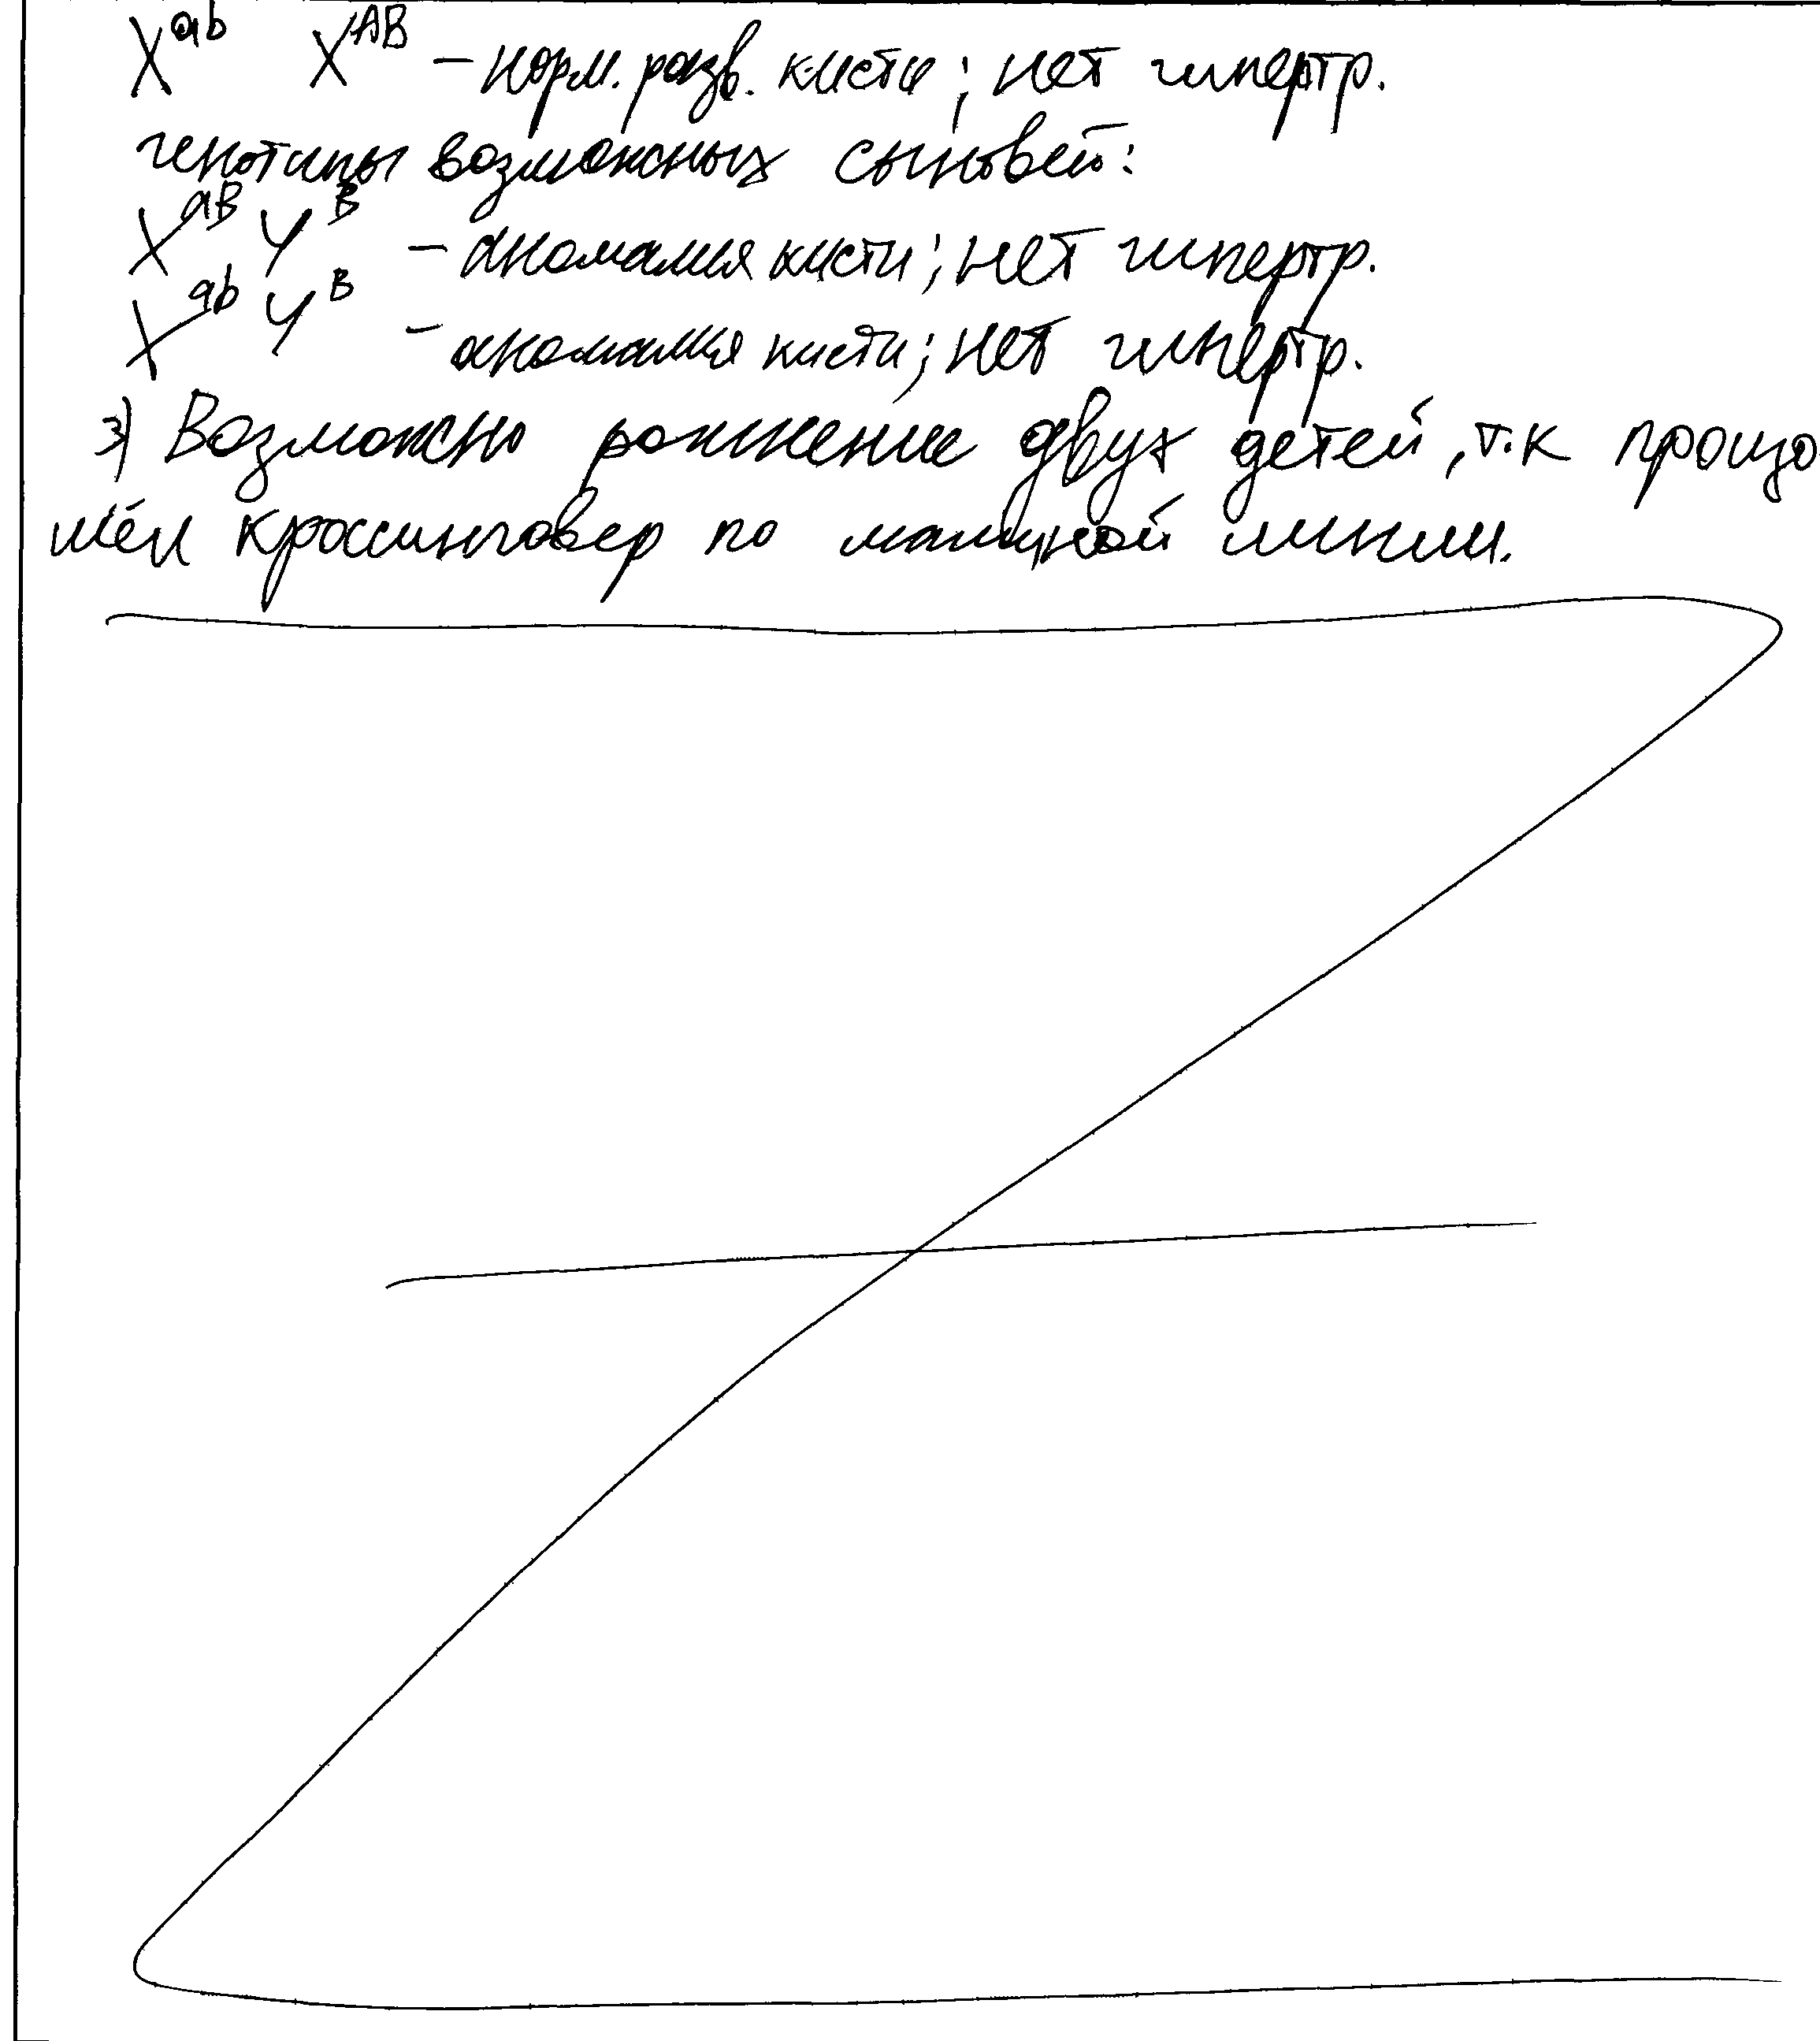 X^ab X^AB – норм. разв. кисти; нет гипертр.
генотипы возможных сыновей:
X^aB Y^B – аномалия кисти; нет гипертр.
X^ab Y^B – аномалия кисти; нет гипертр.
3) Возможно рождение двух детей, т.к произо
шёл кроссинговер по
линии.